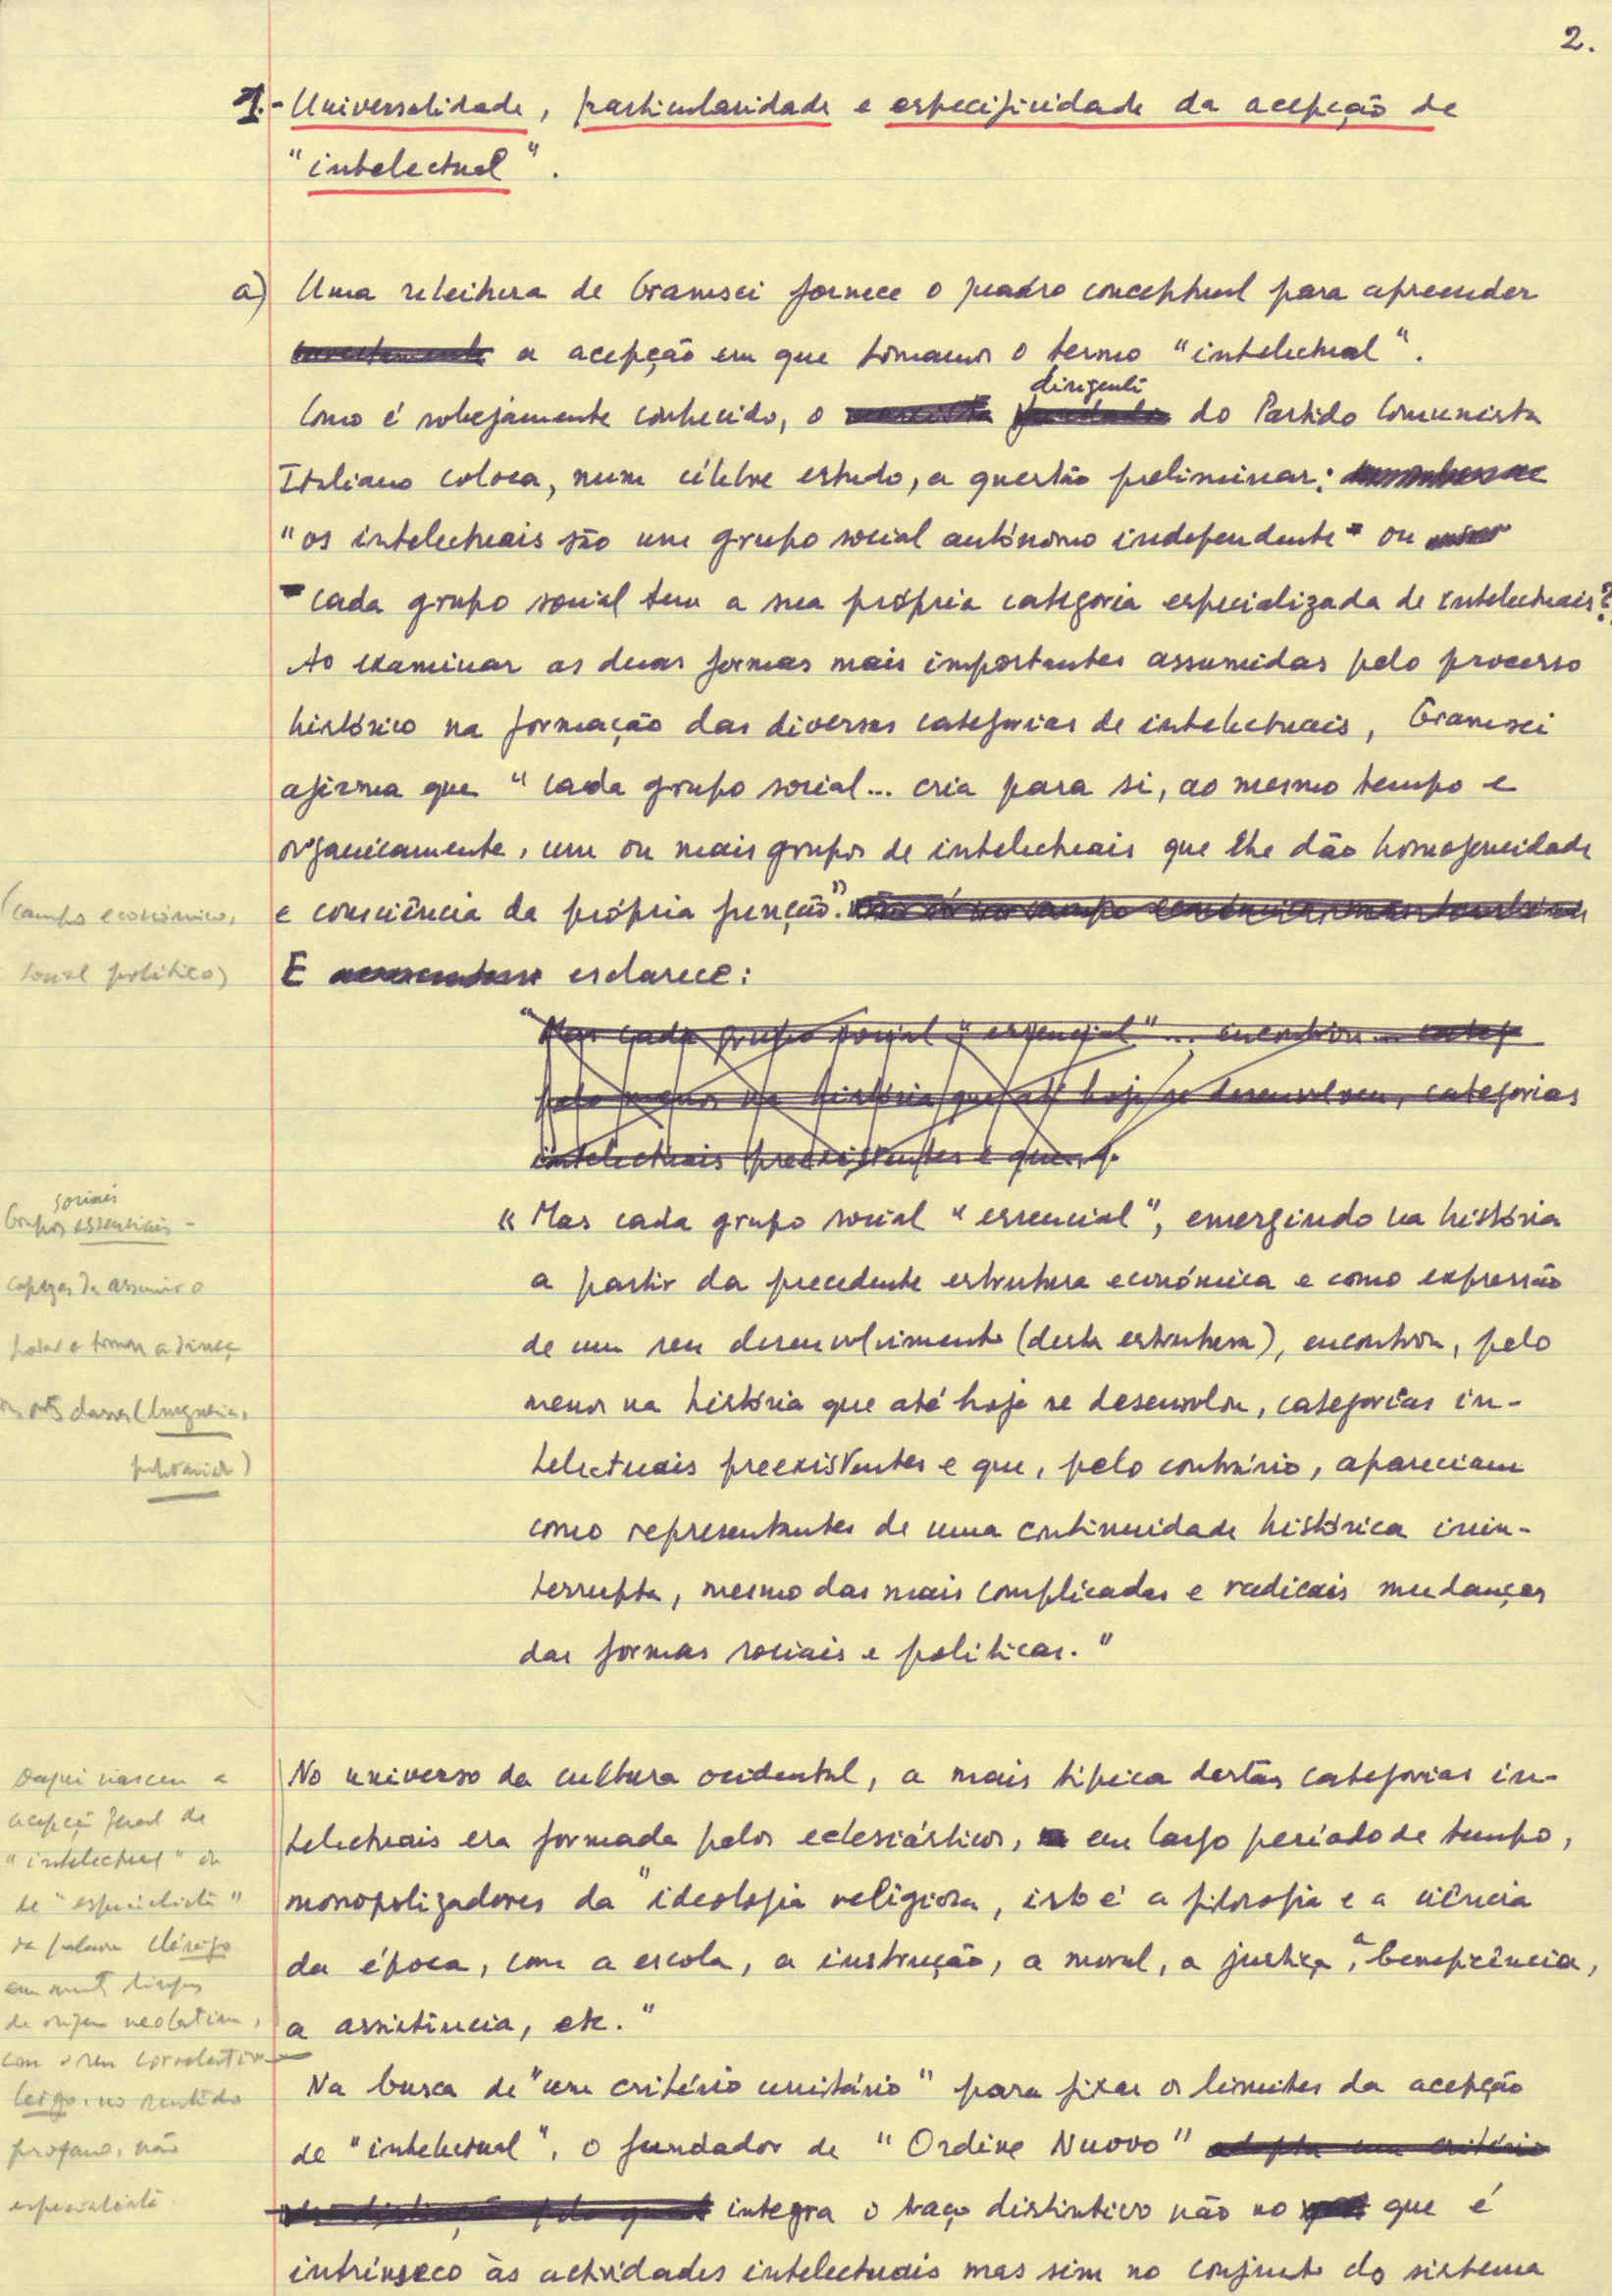 2.
1.- Universalidade, particularidade e especificidade da acepção de
"intelectual".
a) Uma releitura de Gramsci fornece o quadro conceptual para apreender
a acepção em que tomamos o termo "intelectual".
dirigente
Como é sobejamente conhecido, o do Partido Comunista
Italiano coloca, num célebre estudo, a questão preliminar:
"os intelectuais são um grupo social autónomo independente ou
cada grupo social tem a sua própria categoria especializada de intelectuais?
Ao examinar as duas formas mais importantes assumidas pelo processo
histórico na formação das diversas categorias de intelectuais, Gramsci
afirma que "cada grupo social... cria para si, ao mesmo tempo e
organicamente, um ou mais grupos de intelectuais que lhe dão homogeneidade
e consciência da própria função". não só no campo económico, mas também
(campo económico,
social político)
E esclarece:
"Mas cada grupo social "essencial"... encontrou...
pelo menos na história que até hoje se desenvolveu, categorias
intelectuais preexistentes e que
"Mas cada grupo social "essencial", emergindo na história
a partir da precedente estrutura económica e como expressão
de um seu desenvolvimento (desta estrutura), encontrou, pelo
menos na história que até hoje se desenvolveu, categorias in-
telectuais preexistentes e que, pelo contrário, apareciam
como representantes de uma continuidade histórica inin-
terrupta, mesmo das mais complicadas e radicais mudanças
das formas sociais e políticas."
sociais
Grupos essenciais -
capazes de assumir o
poder e tomar a direcç
classes (burguesia,
proletariado)
No universo da cultura ocidental, a mais típica destas categorias in-
telectuais era formada pelos eclesiásticos, em largo período de tempo,
monopolizadores da "ideologia religiosa, isto é a filosofia e a ciência
da época, com a escola, a instrução, a moral, a justiça, a beneficência,
a assistência, etc."
Daqui nasceu a
acepção geral de
"intelectual" ou
de "especialista"
da palavra clérigo
em muitas línguas
de origem neolatina,
com o seu correlativo
leigo, no sentido
profano, não
especialista.
Na busca de "um critério unitário" para fixar os limites da acepção
de "intelectual", o fundador de "Ordine Nuovo" adopta um critério
integra o traço distintivo não no que é
intrínseco às actividades intelectuais mas sim no conjunto do sistema